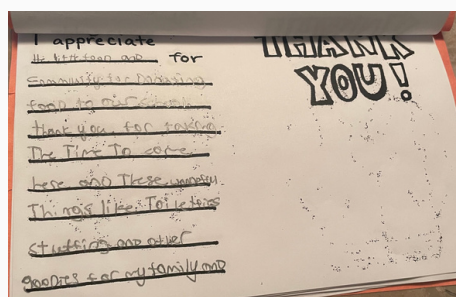 I appreciate
for
Community for Donating
food to our school
thank you for taking
The Time To come
here and These
Things like Toiletries
stuffing and other
goodies for my family and
THANK
YOU!